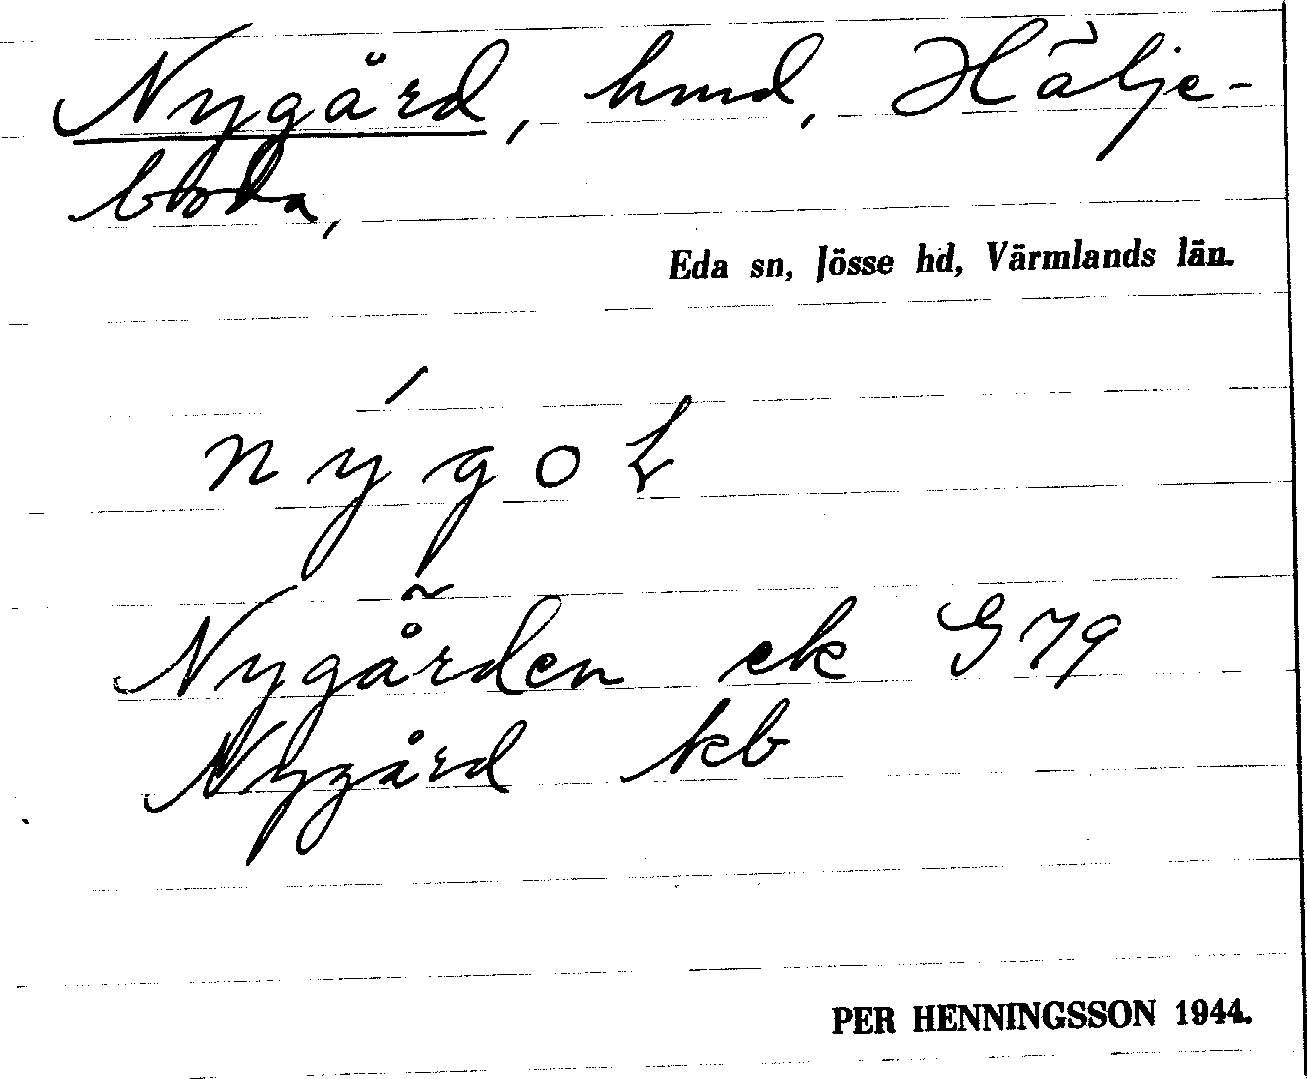 Nygård, hmd, Hälje-
boda,
Eda sn, Jösse hd, Värmlands län.
Nygården ek G 79
Nygård kb
PER HENNINGSSON 1944.